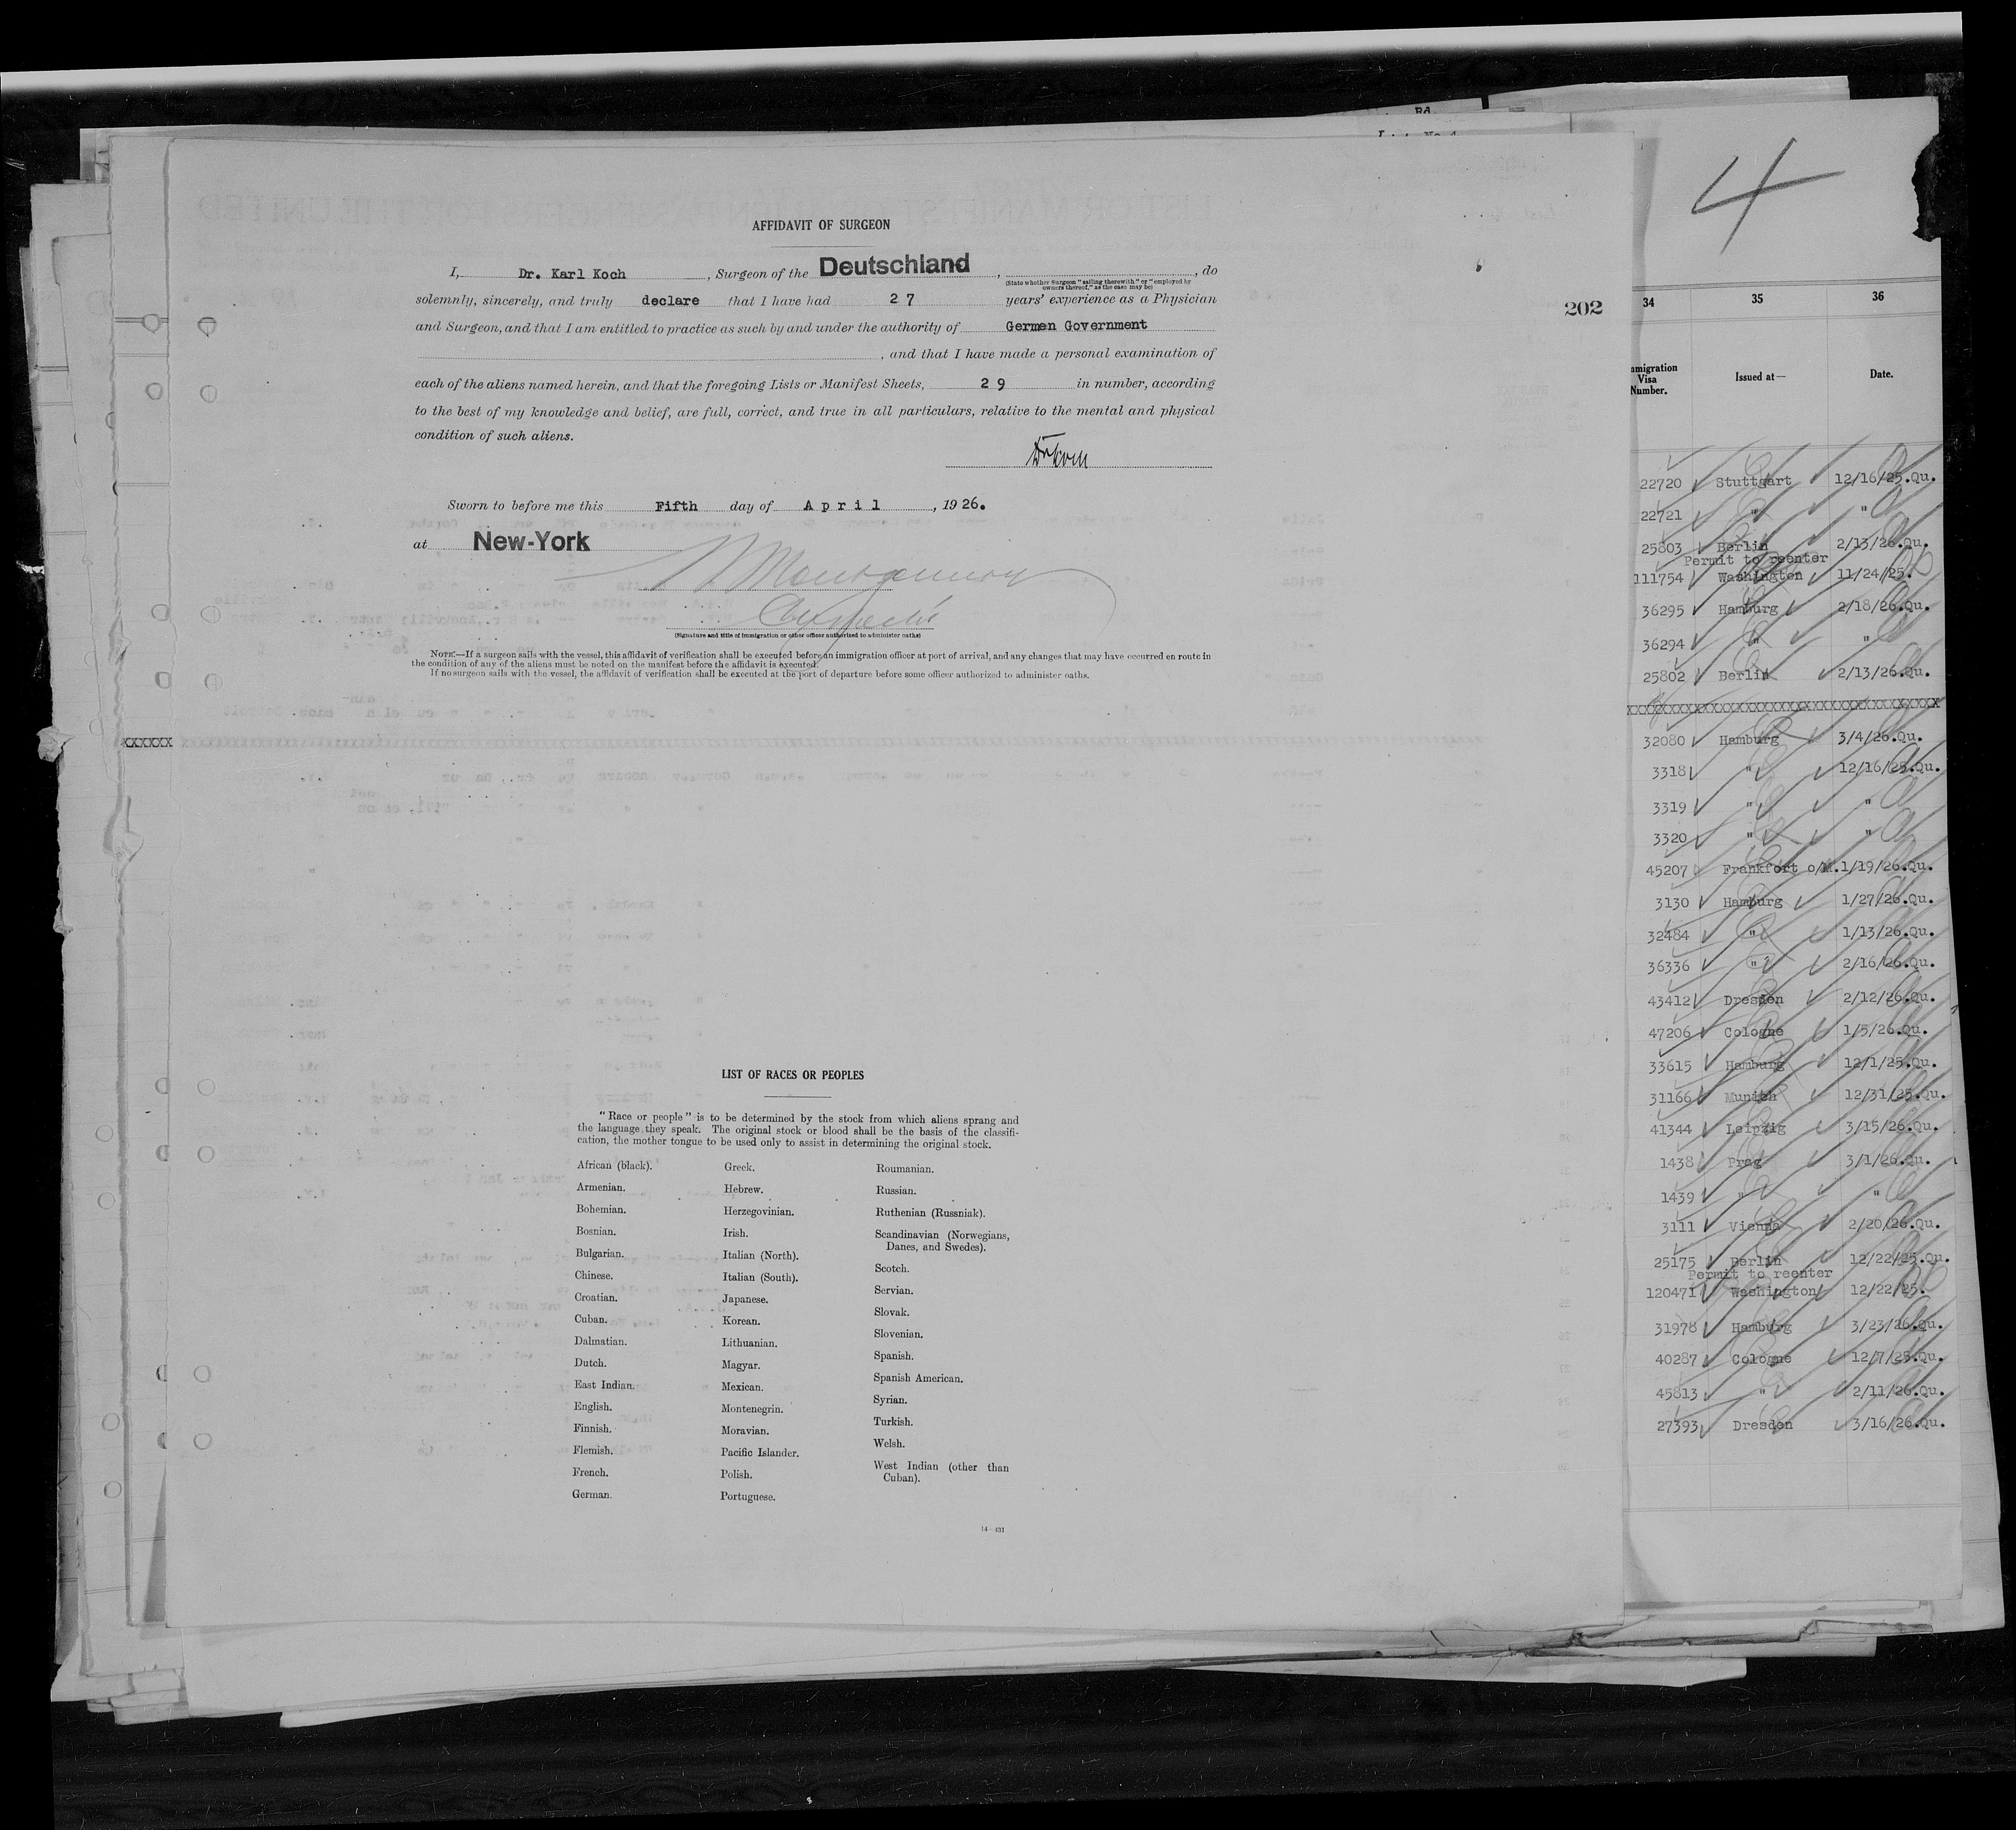 AFFIDAVIT OF SURGEON
I, Dr. Karl Koch, Surgeon of the Deutschland, , do
(State whether Surgeon "sailing therewith" or "employed by owners thereof," as the case may be)
solemnly, sincerely, and truly declare that I have had 27 years' experience as a Physician
and Surgeon, and that I am entitled to practice as such by and under the authority of Germen Government
, and that I have made a personal examination of
each of the aliens named herein, and that the foregoing Lists or Manifest Sheets, 29 in number, according
to the best of my knowledge and belief, are full, correct, and true in all particulars, relative to the mental and physical
condition of such aliens.
Dr Koch
Sworn to before me this Fifth day of April, 1926.
at New-York
(Signature and title of immigration or other officer authorized to administer oaths)
NOTE.—If a surgeon sails with the vessel, this affidavit of verification shall be executed before an immigration officer at port of arrival, and any changes that may have occurred en route in
the condition of any of the aliens must be noted on the manifest before the affidavit is executed.
If no surgeon sails with the vessel, the affidavit of verification shall be executed at the port of departure before some officer authorized to administer oaths.
XXXXXX
LIST OF RACES OR PEOPLES
"Race or people" is to be determined by the stock from which aliens sprang and
the language they speak. The original stock or blood shall be the basis of the classifi-
cation, the mother tongue to be used only to assist in determining the original stock.
African (black).
Armenian.
Bohemian.
Bosnian.
Bulgarian.
Chinese.
Croatian.
Cuban.
Dalmatian.
Dutch.
East Indian.
English.
Finnish.
Flemish.
French.
German.
Greek.
Hebrew.
Herzegovinian.
Irish.
Italian (North).
Italian (South).
Japanese.
Korean.
Lithuanian.
Magyar.
Mexican.
Montenegrin.
Moravian.
Pacific Islander.
Polish.
Portuguese.
Roumanian.
Russian.
Ruthenian (Russniak).
Scandinavian (Norwegians,
Danes, and Swedes).
Scotch.
Servian.
Slovak.
Slovenian.
Spanish.
Spanish American.
Syrian.
Turkish.
Welsh.
West Indian (other than
Cuban).
14—431
202
4
34 35 36
Visa
Number.
Issued at—
Date.
22720 Stuttgart 12/16/25.Qu.
22721 " "
25803 Berlin 2/13/26.Qu.
Permit to reenter
111754 Washington 11/24/25.
36295 Hamburg 2/18/26.Qu.
36294 " "
25802 Berlin 2/13/26.Qu.
XXXXXXXXXXXXXXXXXXXXXXXXXXXXXXXXXX
32080 Hamburg 3/4/26.Qu.
3318 " 12/16/25.Qu.
3319 " "
3320 " "
45207 Frankfort o/M. 1/19/26.Qu.
3130 Hamburg 1/27/26.Qu.
32484 " 1/13/26.Qu.
36336 " 2/16/26.Qu.
43412 Dresden 2/12/26.Qu.
47206 Cologne 1/5/26.Qu.
33615 Hamburg 12/1/25.Qu.
31166 Munich 12/31/25.Qu.
41344 Leipzig 3/15/26.Qu.
1438 Prag 3/1/26.Qu.
1439 " "
3111 Vienna 2/20/26.Qu.
25175 Berlin 12/22/25.Qu.
Permit to reenter
120471 Washington 12/22/25.
31978 Hamburg 3/23/26.Qu.
40287 Cologne 12/7/25.Qu.
45813 " 2/11/26.Qu.
27393 Dresden 3/16/26.Qu.